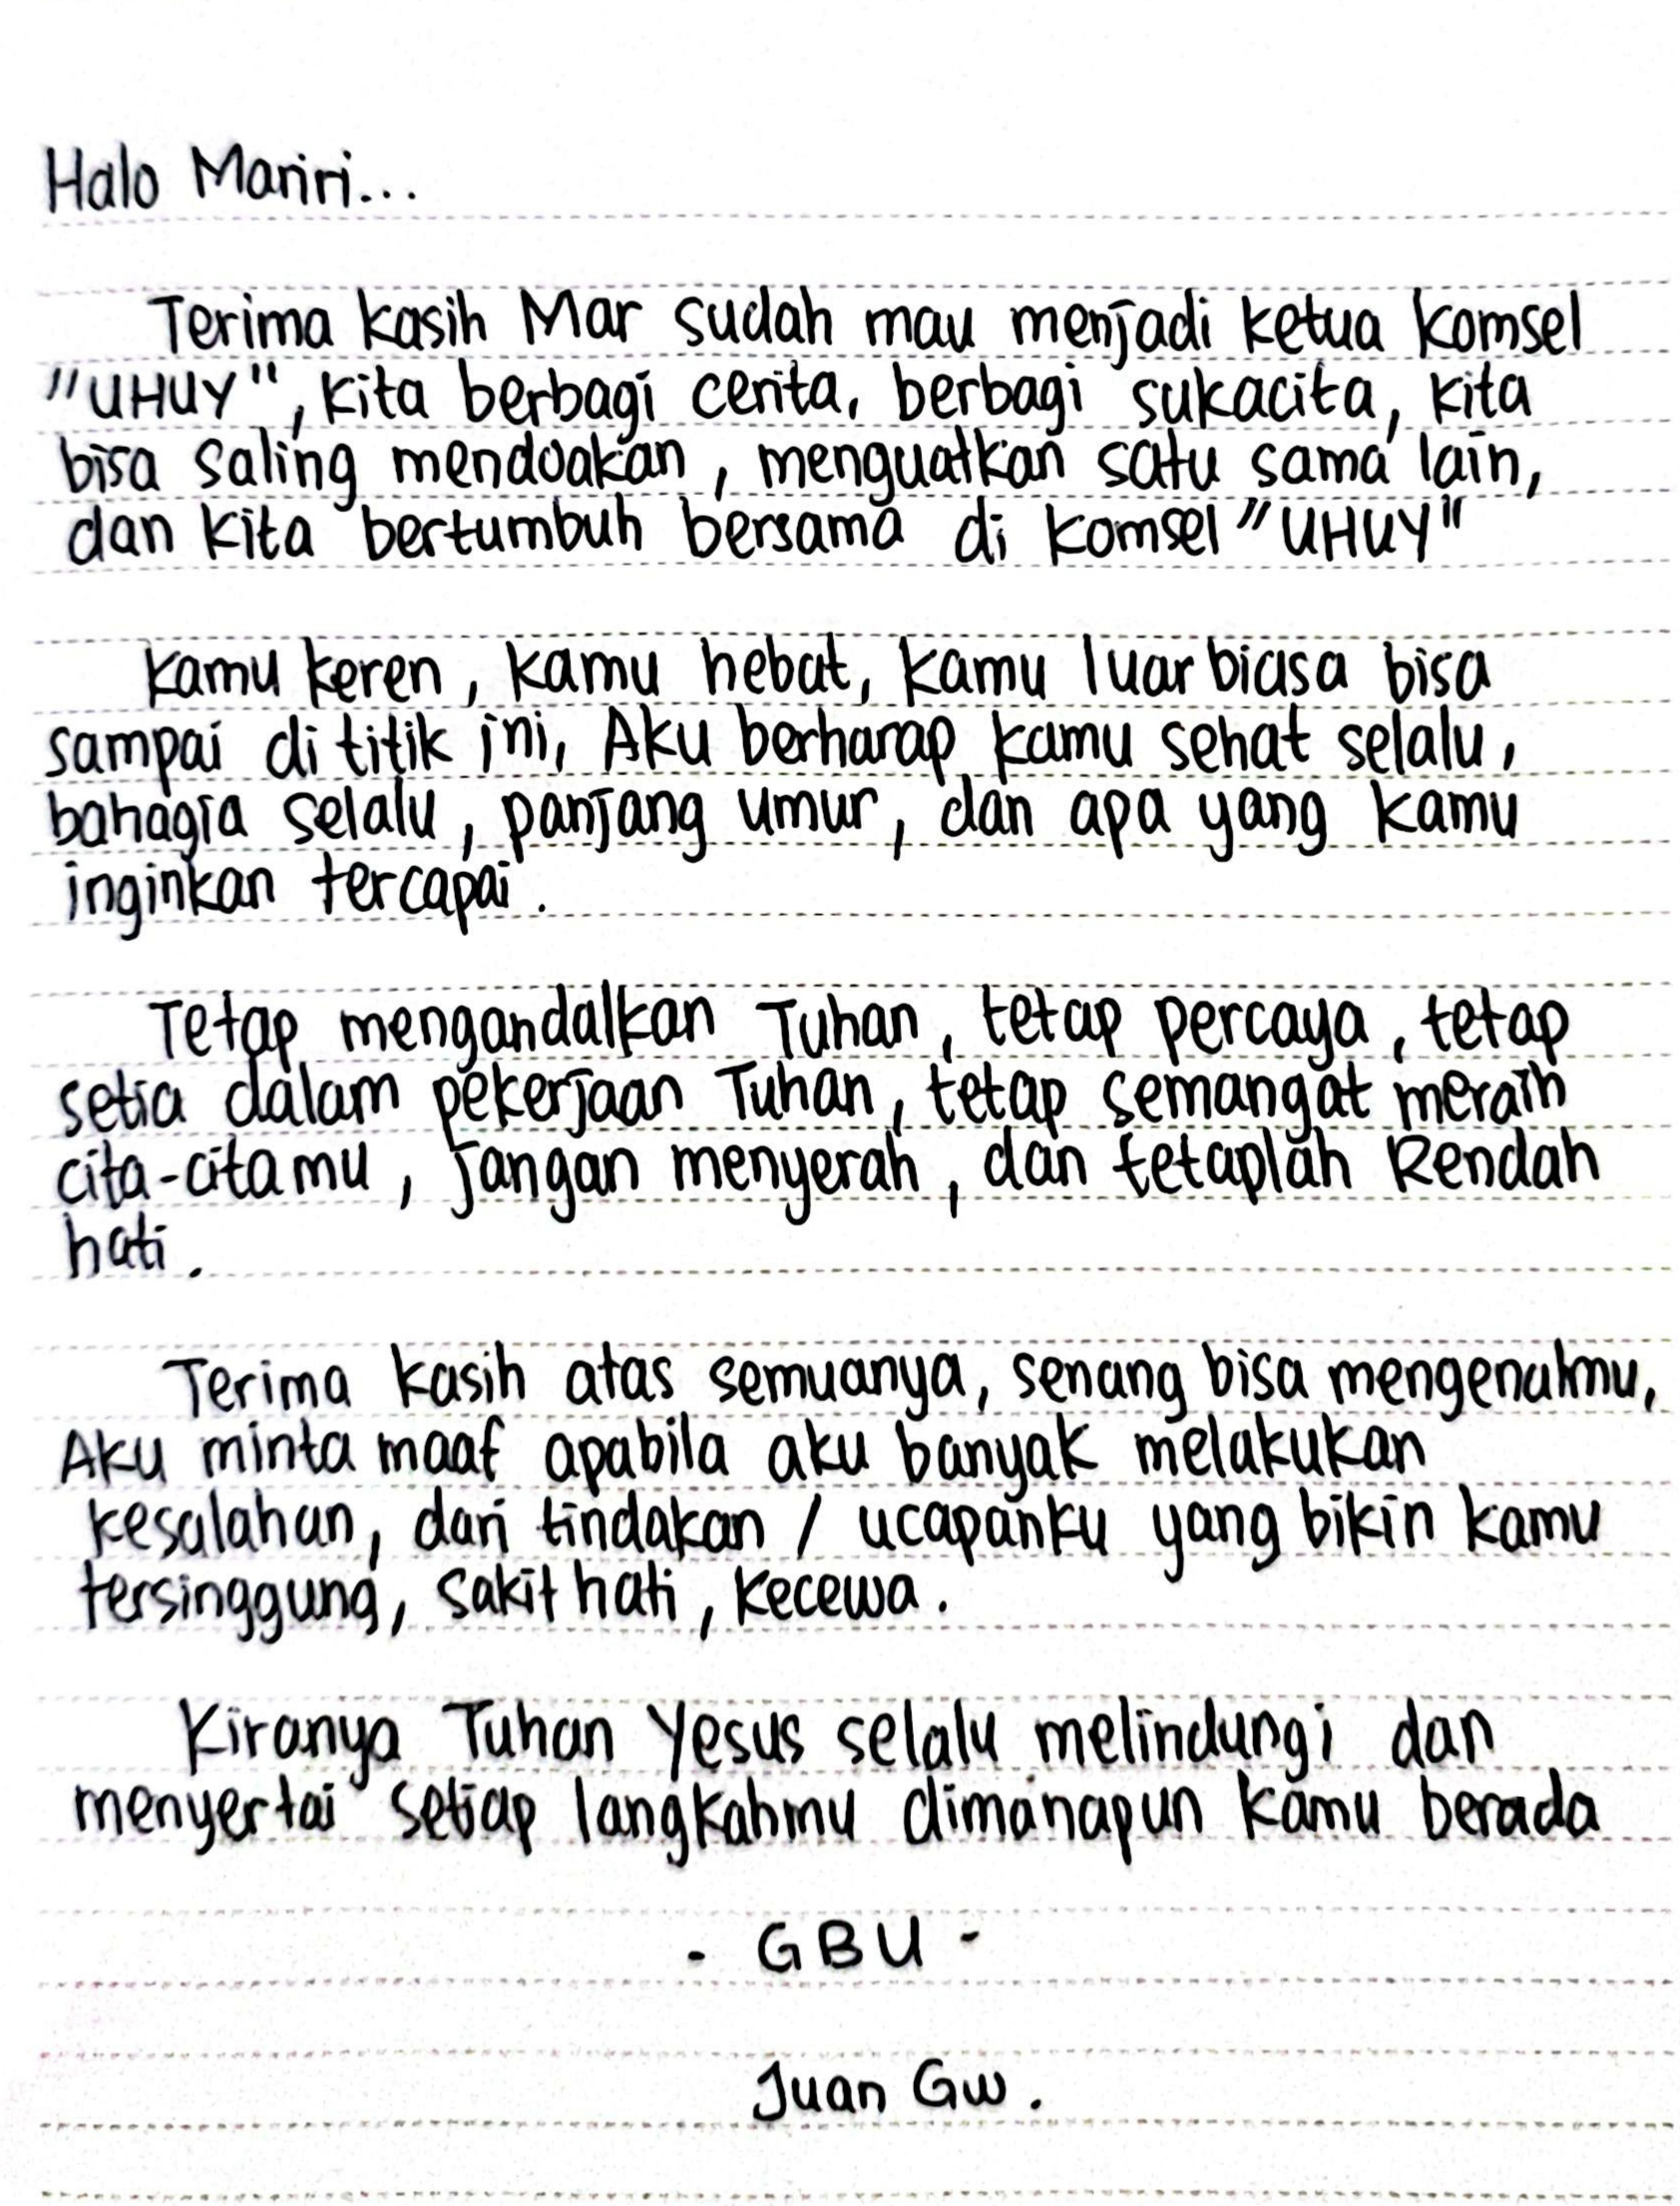 Halo Mariri...
Terima kasih Mar sudah mau menjadi ketua komsel
"UHUY", kita berbagi cerita, berbagi sukacita, kita
bisa saling mendoakan, menguatkan satu sama lain,
dan kita bertumbuh bersama di komsel "UHUY"
Kamu keren, kamu hebat, kamu luar biasa bisa
sampai di titik ini, Aku berharap kamu sehat selalu,
bahagia selalu, panjang umur, dan apa yang kamu
inginkan tercapai.
Tetap mengandalkan Tuhan, tetap percaya, tetap
setia dalam pekerjaan Tuhan, tetap semangat meraih
cita-citamu, jangan menyerah, dan tetaplah Rendah
hati.
Terima kasih atas semuanya, senang bisa mengenalmu,
Aku minta maaf apabila aku banyak melakukan
kesalahan, dari tindakan / ucapanku yang bikin kamu
tersinggung, sakit hati, kecewa.
Kiranya Tuhan Yesus selalu melindungi dan
menyertai setiap langkahmu dimanapun kamu berada
- GBU -
Juan Gw.